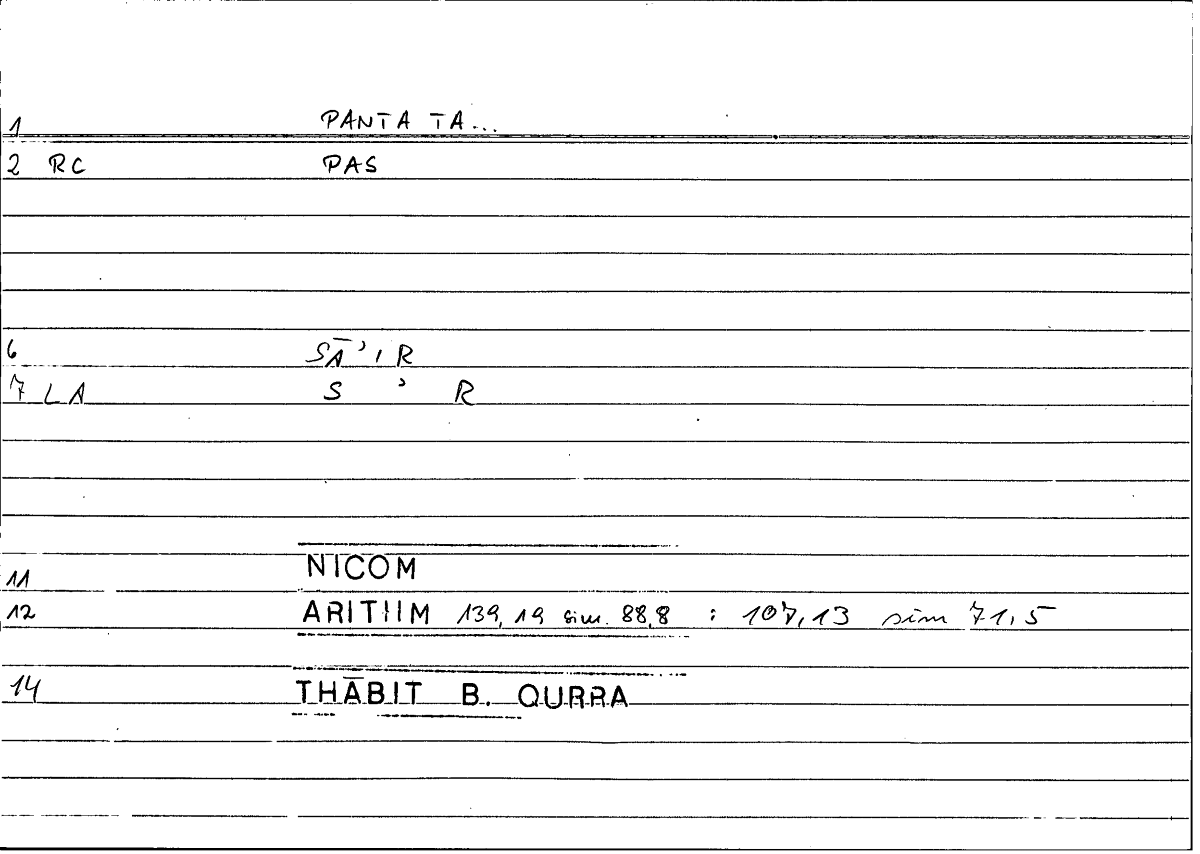 1 PANTA TA...
2 RC PAS
6 SĀ'IR
7 LA S ' R
11 NICOM
12 ARITHM 139,19 sim. 88,8 : 107,13 sim 71,5
14 THĀBIT B. QURRA